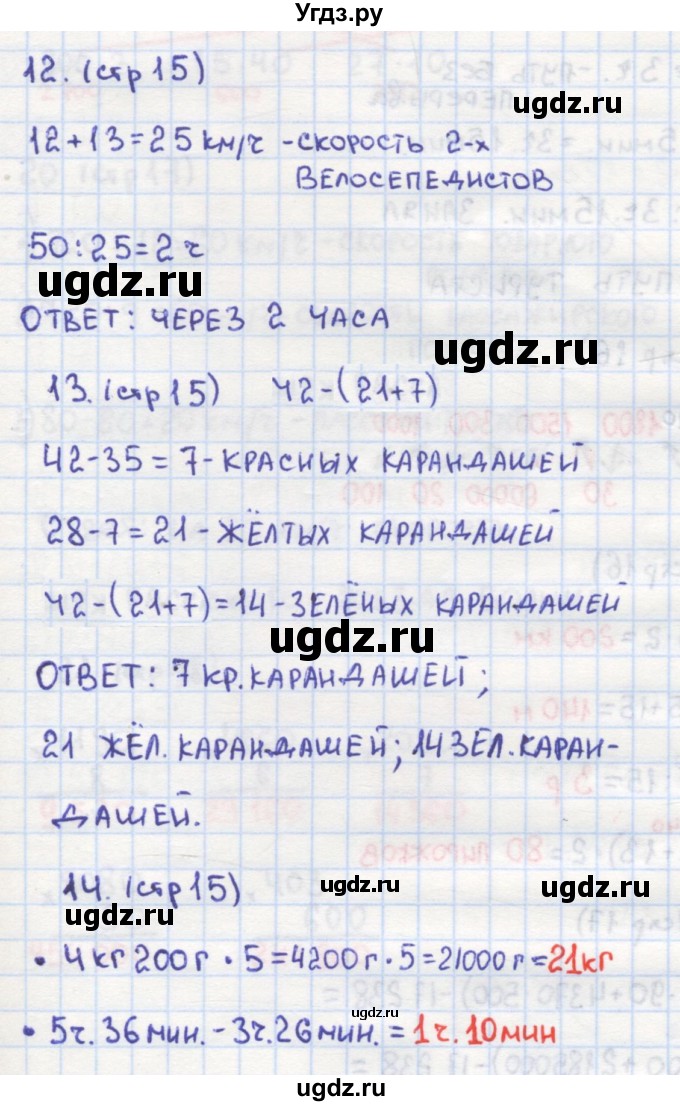 Угдз.ру
12. (стр 15)
ugdz.ru
12+13=25 км/ч -скорость 2-х
ВЕЛОСЕПЕДИСТОВ
50:25=2 ч
ugdz.ru
ОТВЕТ: ЧЕРЕЗ 2 ЧАСА
ugdz.ru
13. (стр 15) 42-(21+7)
42-35=7-КРАСНЫХ КАРАНДАШЕЙ
28-7=21-ЖЁЛТЫХ КАРАНДАШЕЙ
42-(21+7)=14-ЗЕЛЁНЫХ КАРАНДАШЕЙ
ugdz.ru
ОТВЕТ: 7 КР. КАРАНДАШЕЙ;
21 ЖЁЛ. КАРАНДАШЕЙ; 14 ЗЕЛ. КАРАН-
ДАШЕЙ.
14. (стр 15)
ugdz.ru
ugdz.ru
ugdz.ru
• 4 кг 200 г · 5=4200 г · 5=21000 г=21кг
ugdz.ru
• 5ч. 36 мин. - 3ч. 26 мин. = 1 ч. 10 мин
ugdz.ru